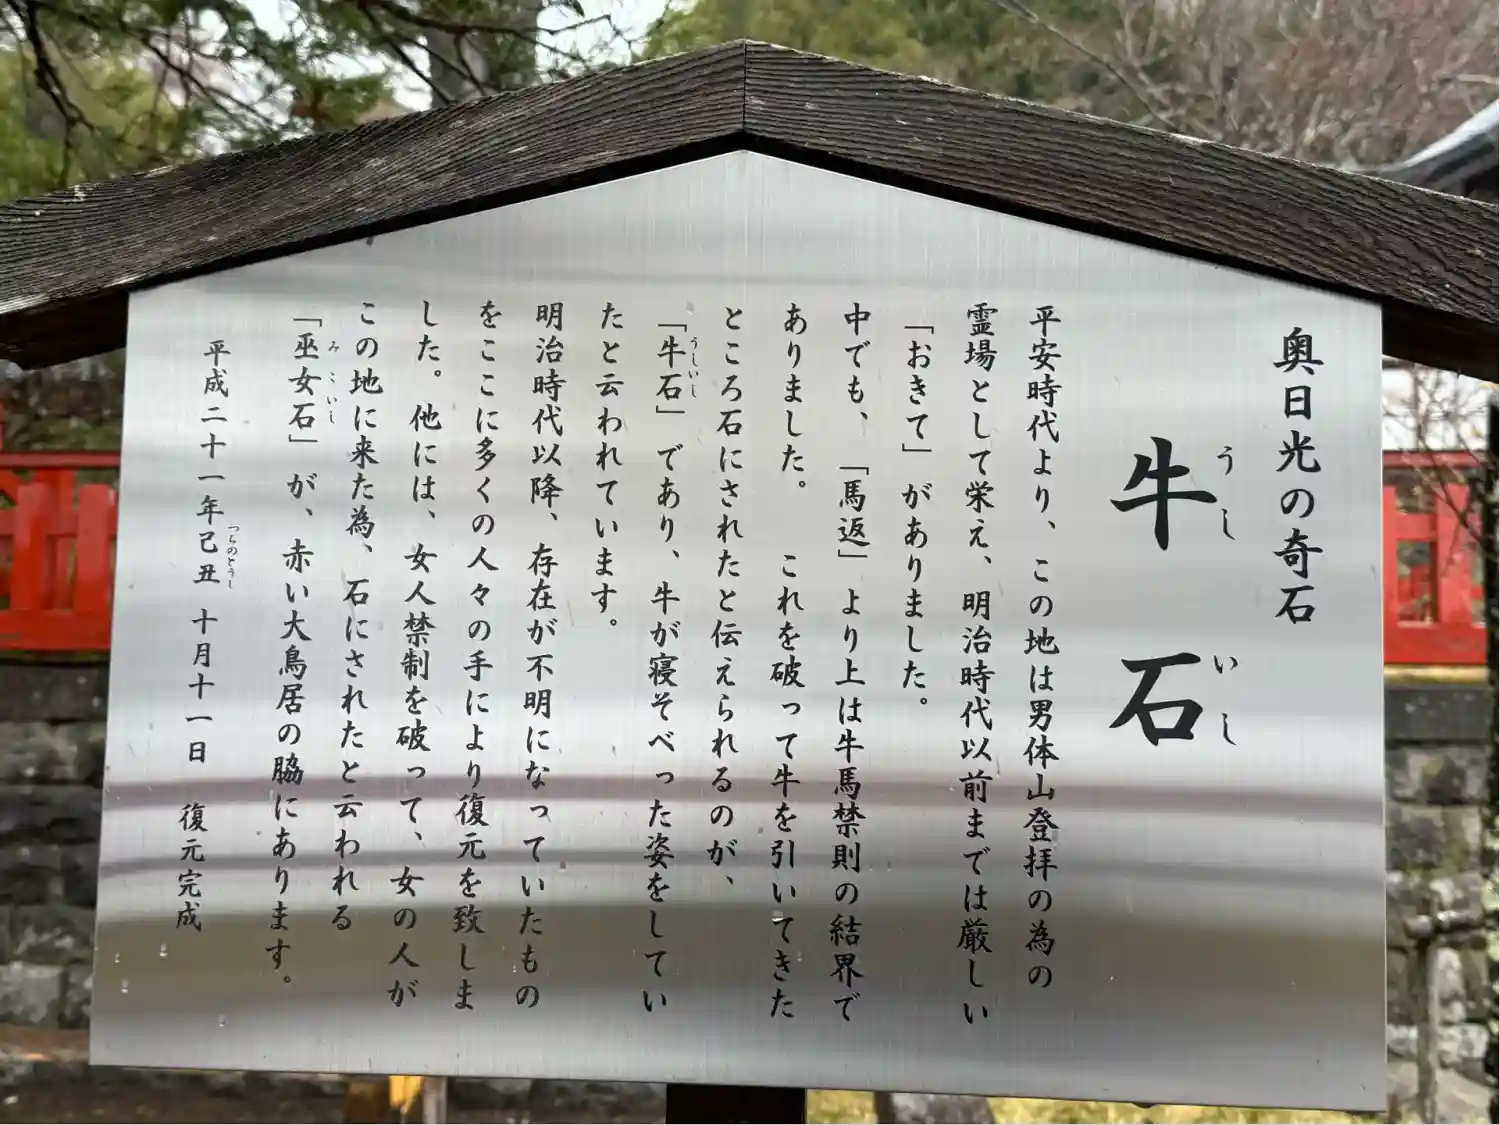 奥日光の奇石
牛石
うし いし
平安時代より、この地は男体山登拝の為の
霊場として栄え、明治時代以前までは厳しい
「おきて」がありました。
中でも、「馬返」より上は牛馬禁則の結界で
ありました。 これを破って牛を引いてきた
ところ石にされたと伝えられるのが、
「牛石」であり、牛が寝そべった姿をしてい
うしいし
たと云われています。
明治時代以降、存在が不明になっていたもの
をここに多くの人々の手により復元を致しま
した。他には、女人禁制を破って、女の人が
この地に来た為、石にされたと云われる
「巫女石」が、赤い大鳥居の脇にあります。
みこいし
平成二十一年己丑 十月十一日 復元完成
つちのとうし